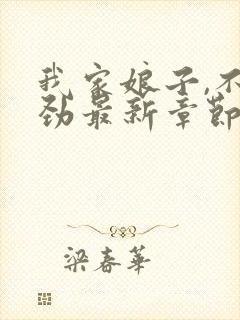 我家娘子,不
劲最新章節
梁春華